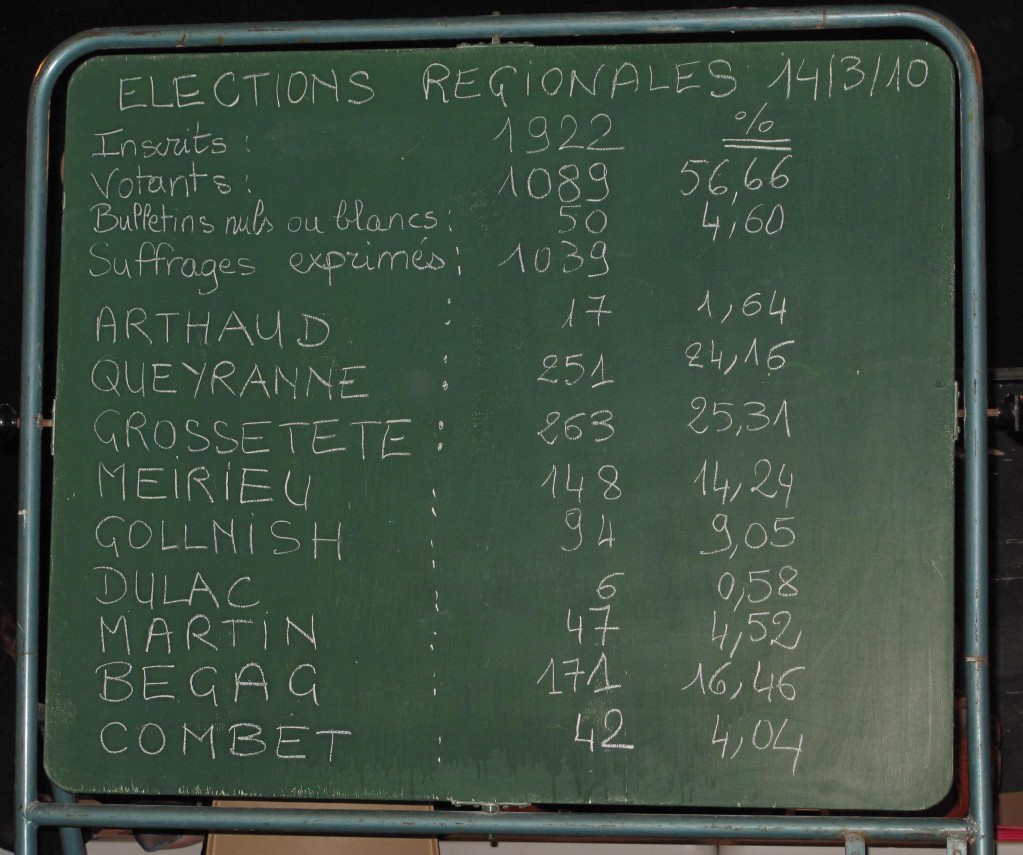 ELECTIONS REGIONALES 14/3/10
Inscrits : 1922 %
Votants : 1089 56,66
Bulletins nuls ou blancs : 50 4,60
Suffrages exprimés : 1039
ARTHAUD : 17 1,64
QUEYRANNE : 251 24,16
GROSSETETE : 263 25,31
MEIRIEU : 148 14,24
GOLLNISH : 94 9,05
DULAC : 6 0,58
MARTIN : 47 4,52
BEGAG : 171 16,46
COMBET : 42 4,04